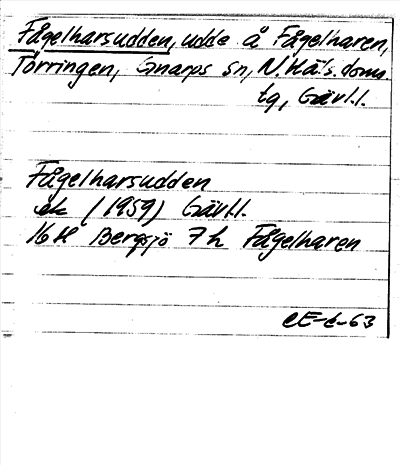 Fågelharsudden, udde å Fågelharen,
Törringen, Gnarps sn, N. Häls. doms
tg, Gävl.l.
Fågelharsudden
ek (1959) Gävl.l.
16H Bergsjö 7h Fågelharen